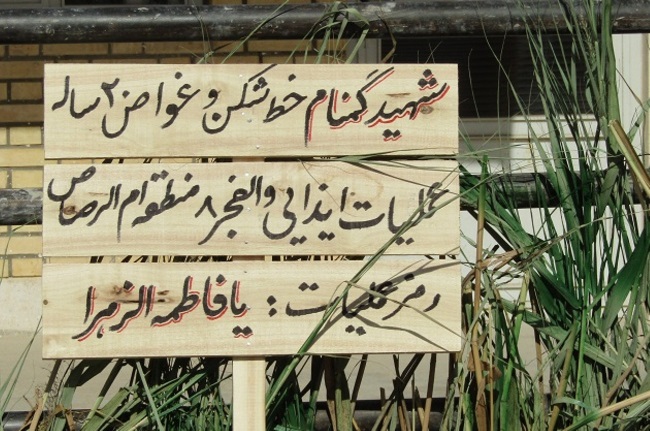 شهید گمنام خط شکن و غواص ۲۰ ساله
عملیات ایذایی والفجر ۸ منطقه ام الرصاص
رمز عملیات : یا فاطمه الزهرا